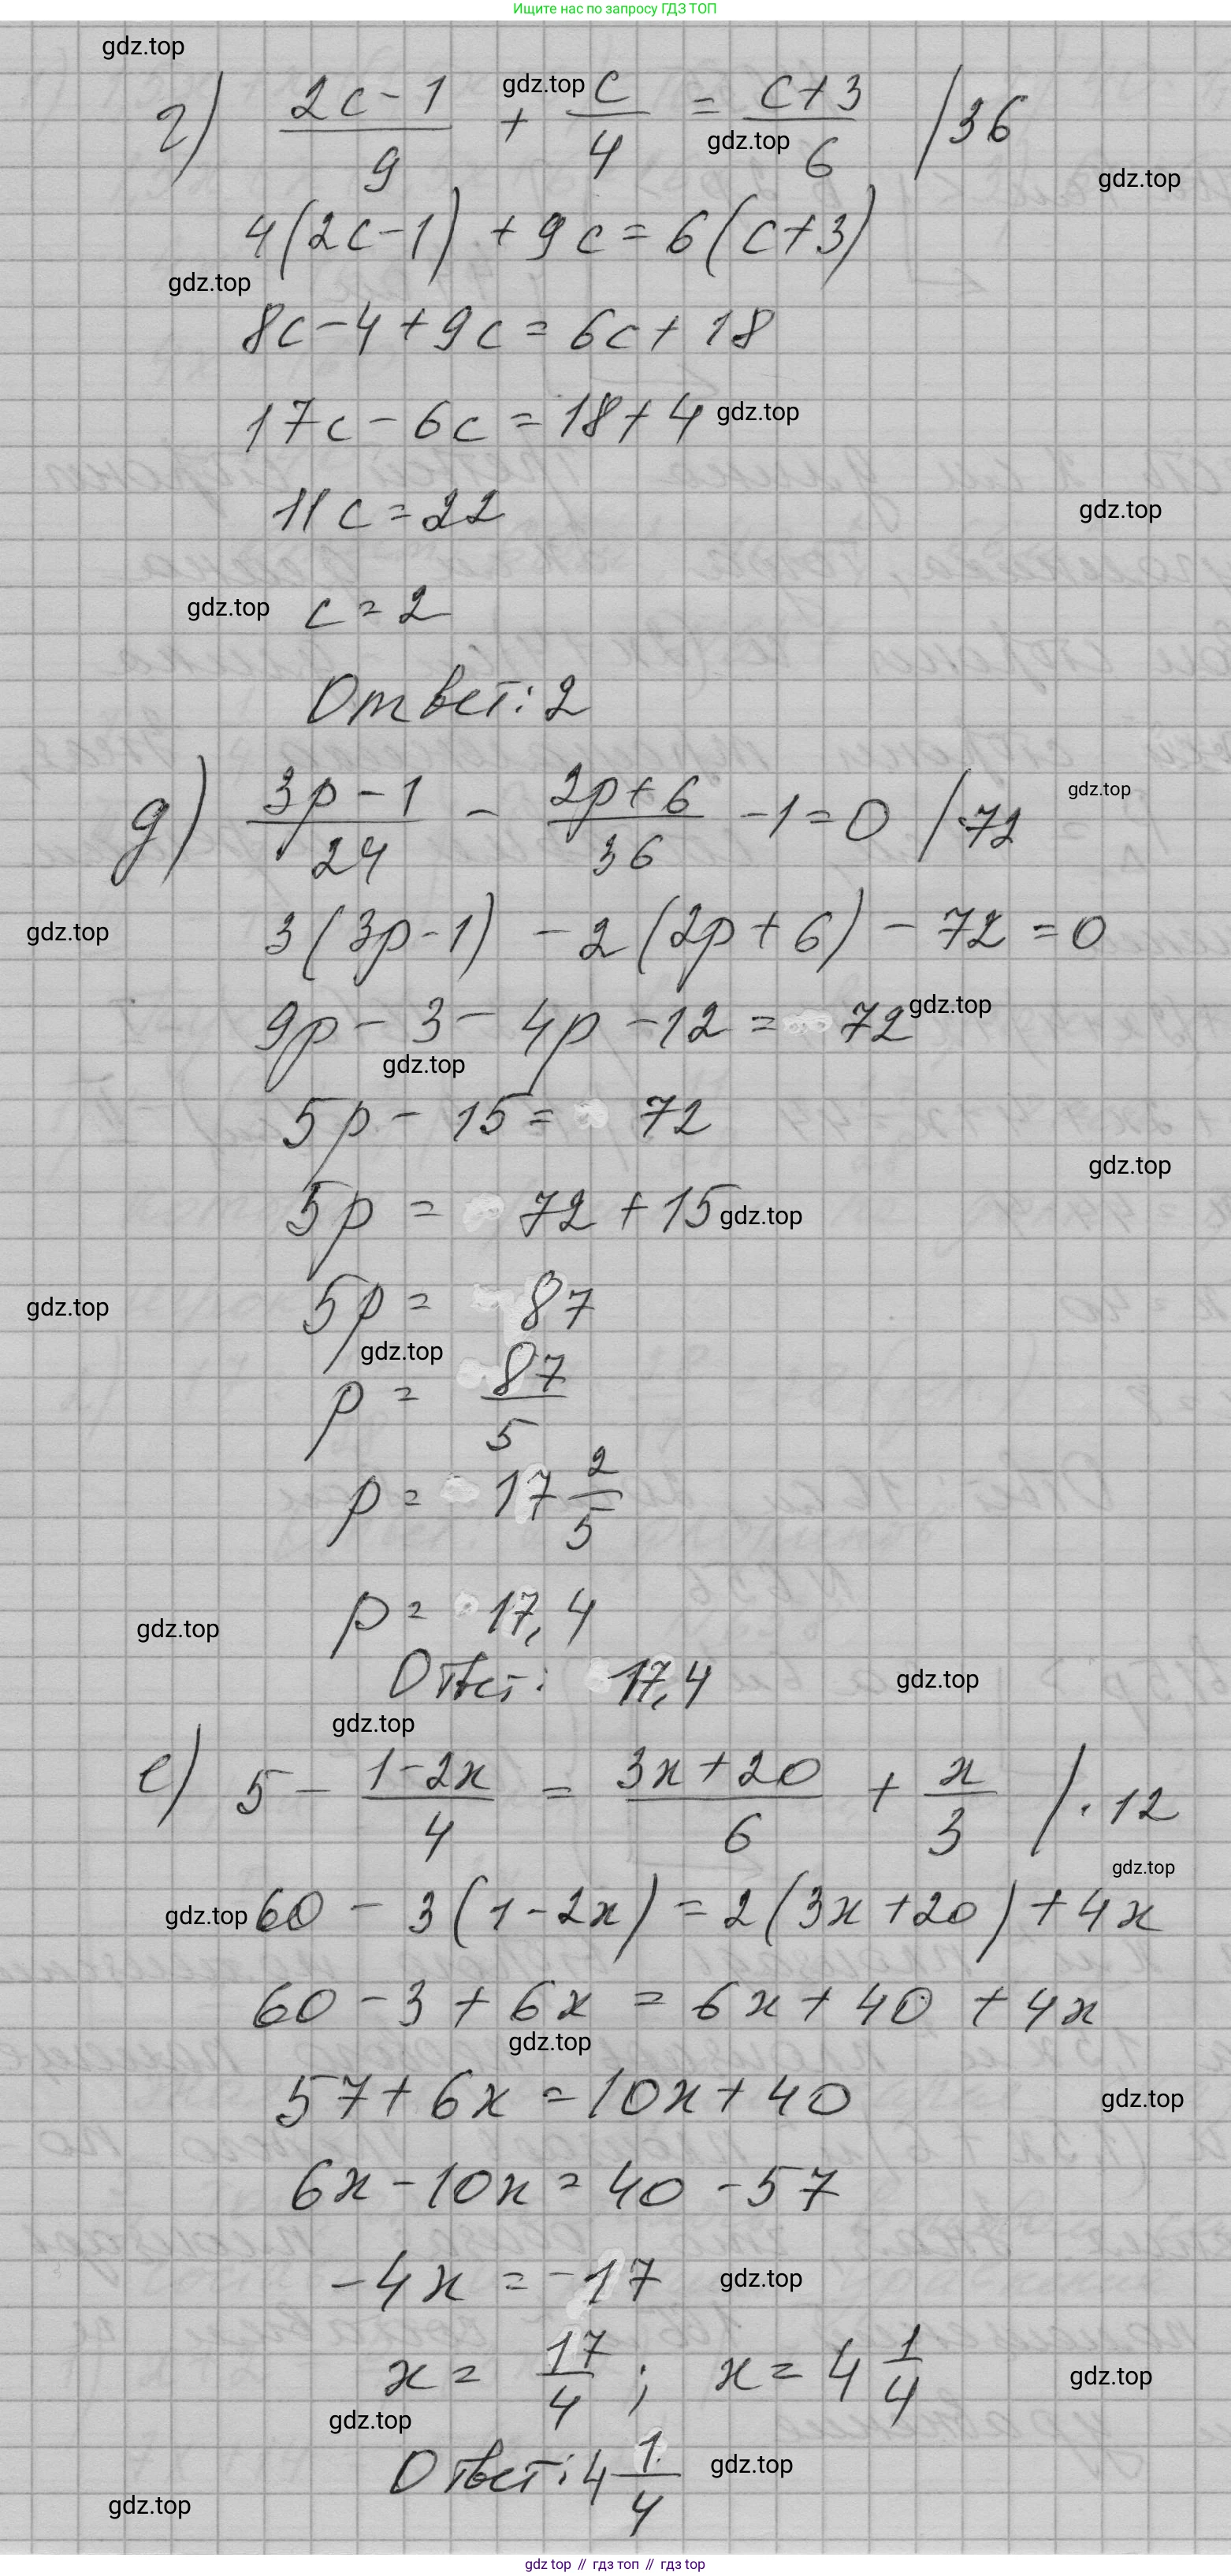 Ищите нас по запросу ГДЗ ТОП
gdz.top
г) (2c-1)/9 + c/4 = (c+3)/6 /36
gdz.top
gdz.top
gdz.top
4(2c-1) + 9c = 6(c+3)
gdz.top
8c-4+9c = 6c+18
17c-6c = 18+4
gdz.top
11c = 22
gdz.top
gdz.top
c = 2
Ответ: 2
д) (3p-1)/24 - (2p+6)/36 -1=0 /·72
gdz.top
gdz.top
3(3p-1) - 2(2p+6) - 72 = 0
9p - 3 - 4p - 12 = 72
gdz.top
gdz.top
5p - 15 = 72
gdz.top
5p = 72 + 15
gdz.top
gdz.top
5p = 87
gdz.top
p = 87/5
p = 17 2/5
gdz.top
p = 17,4
Ответ: 17,4
gdz.top
gdz.top
е) 5 - (1-2x)/4 = (3x+20)/6 + x/3 /·12
gdz.top
gdz.top
60 - 3(1-2x) = 2(3x+20) + 4x
60 - 3 + 6x = 6x + 40 + 4x
gdz.top
57 + 6x = 10x + 40
gdz.top
6x - 10x = 40 - 57
-4x = -17
gdz.top
x = 17/4 ; x = 4 1/4
gdz.top
gdz.top
Ответ: 4 1/4
gdz.top
gdz.top
gdz top // гдз топ // гдз top